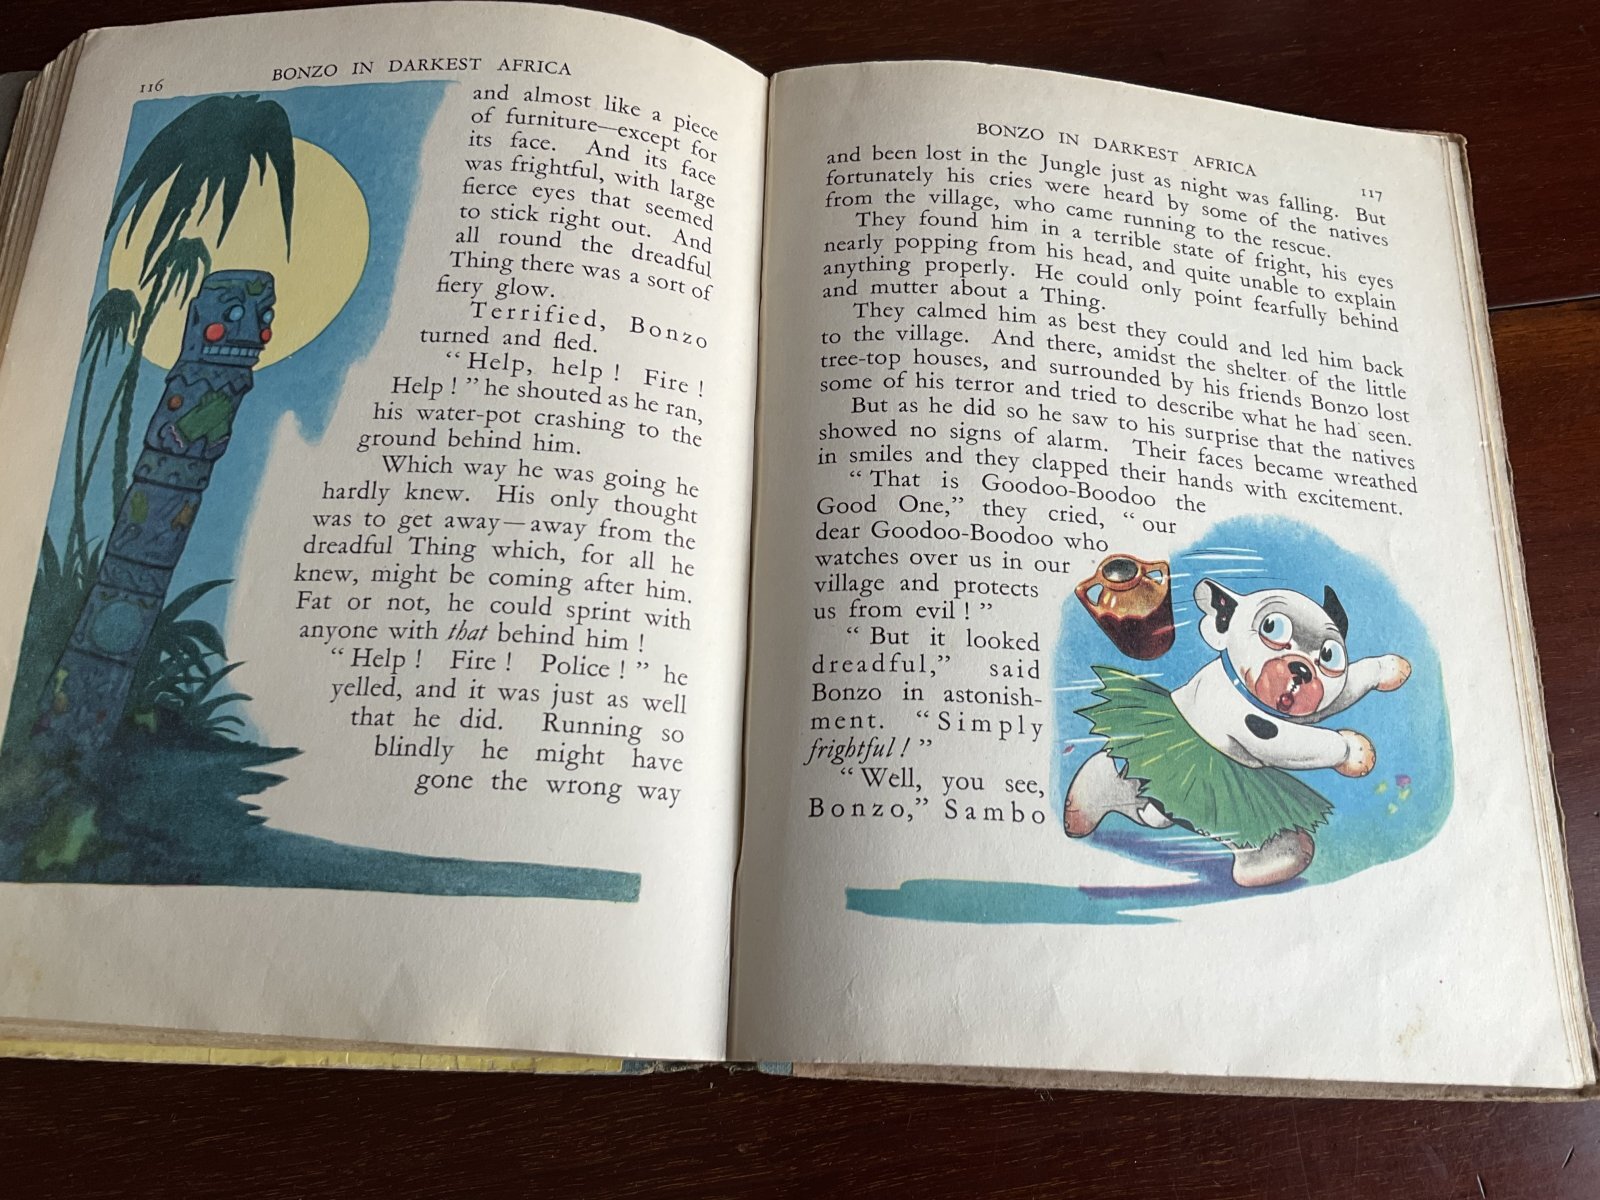 116
BONZO IN DARKEST AFRICA
and almost like a piece
of furniture—except for
its face. And its face
was frightful, with large
fierce eyes that seemed
to stick right out. And
all round the dreadful
Thing there was a sort of
fiery glow.
Terrified, Bonzo
turned and fled.
“ Help, help ! Fire !
Help ! ” he shouted as he ran,
his water-pot crashing to the
ground behind him.
Which way he was going he
hardly knew. His only thought
was to get away—away from the
dreadful Thing which, for all he
knew, might be coming after him.
Fat or not, he could sprint with
anyone with that behind him !
“ Help ! Fire ! Police ! ” he
yelled, and it was just as well
that he did. Running so
blindly he might have
gone the wrong way
BONZO IN DARKEST AFRICA
117
and been lost in the Jungle just as night was falling. But
fortunately his cries were heard by some of the natives
from the village, who came running to the rescue.
They found him in a terrible state of fright, his eyes
nearly popping from his head, and quite unable to explain
anything properly. He could only point fearfully behind
and mutter about a Thing.
They calmed him as best they could and led him back
to the village. And there, amidst the shelter of the little
tree-top houses, and surrounded by his friends Bonzo lost
some of his terror and tried to describe what he had seen.
But as he did so he saw to his surprise that the natives
showed no signs of alarm. Their faces became wreathed
in smiles and they clapped their hands with excitement.
“ That is Goodoo-Boodoo the
Good One,” they cried, “ our
dear Goodoo-Boodoo who
watches over us in our
village and protects
us from evil ! ”
“ But it looked
dreadful,” said
Bonzo in astonish-
ment. “ Simply
frightful ! ”
“ Well, you see,
Bonzo,” Sambo